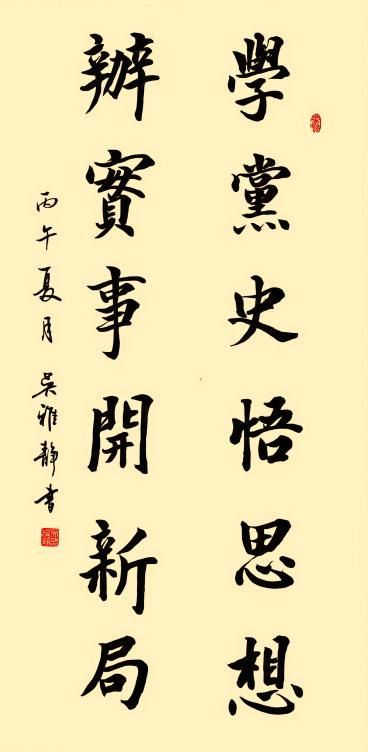 學黨史悟思想
辦實事開新局
丙午夏月吴雅静書